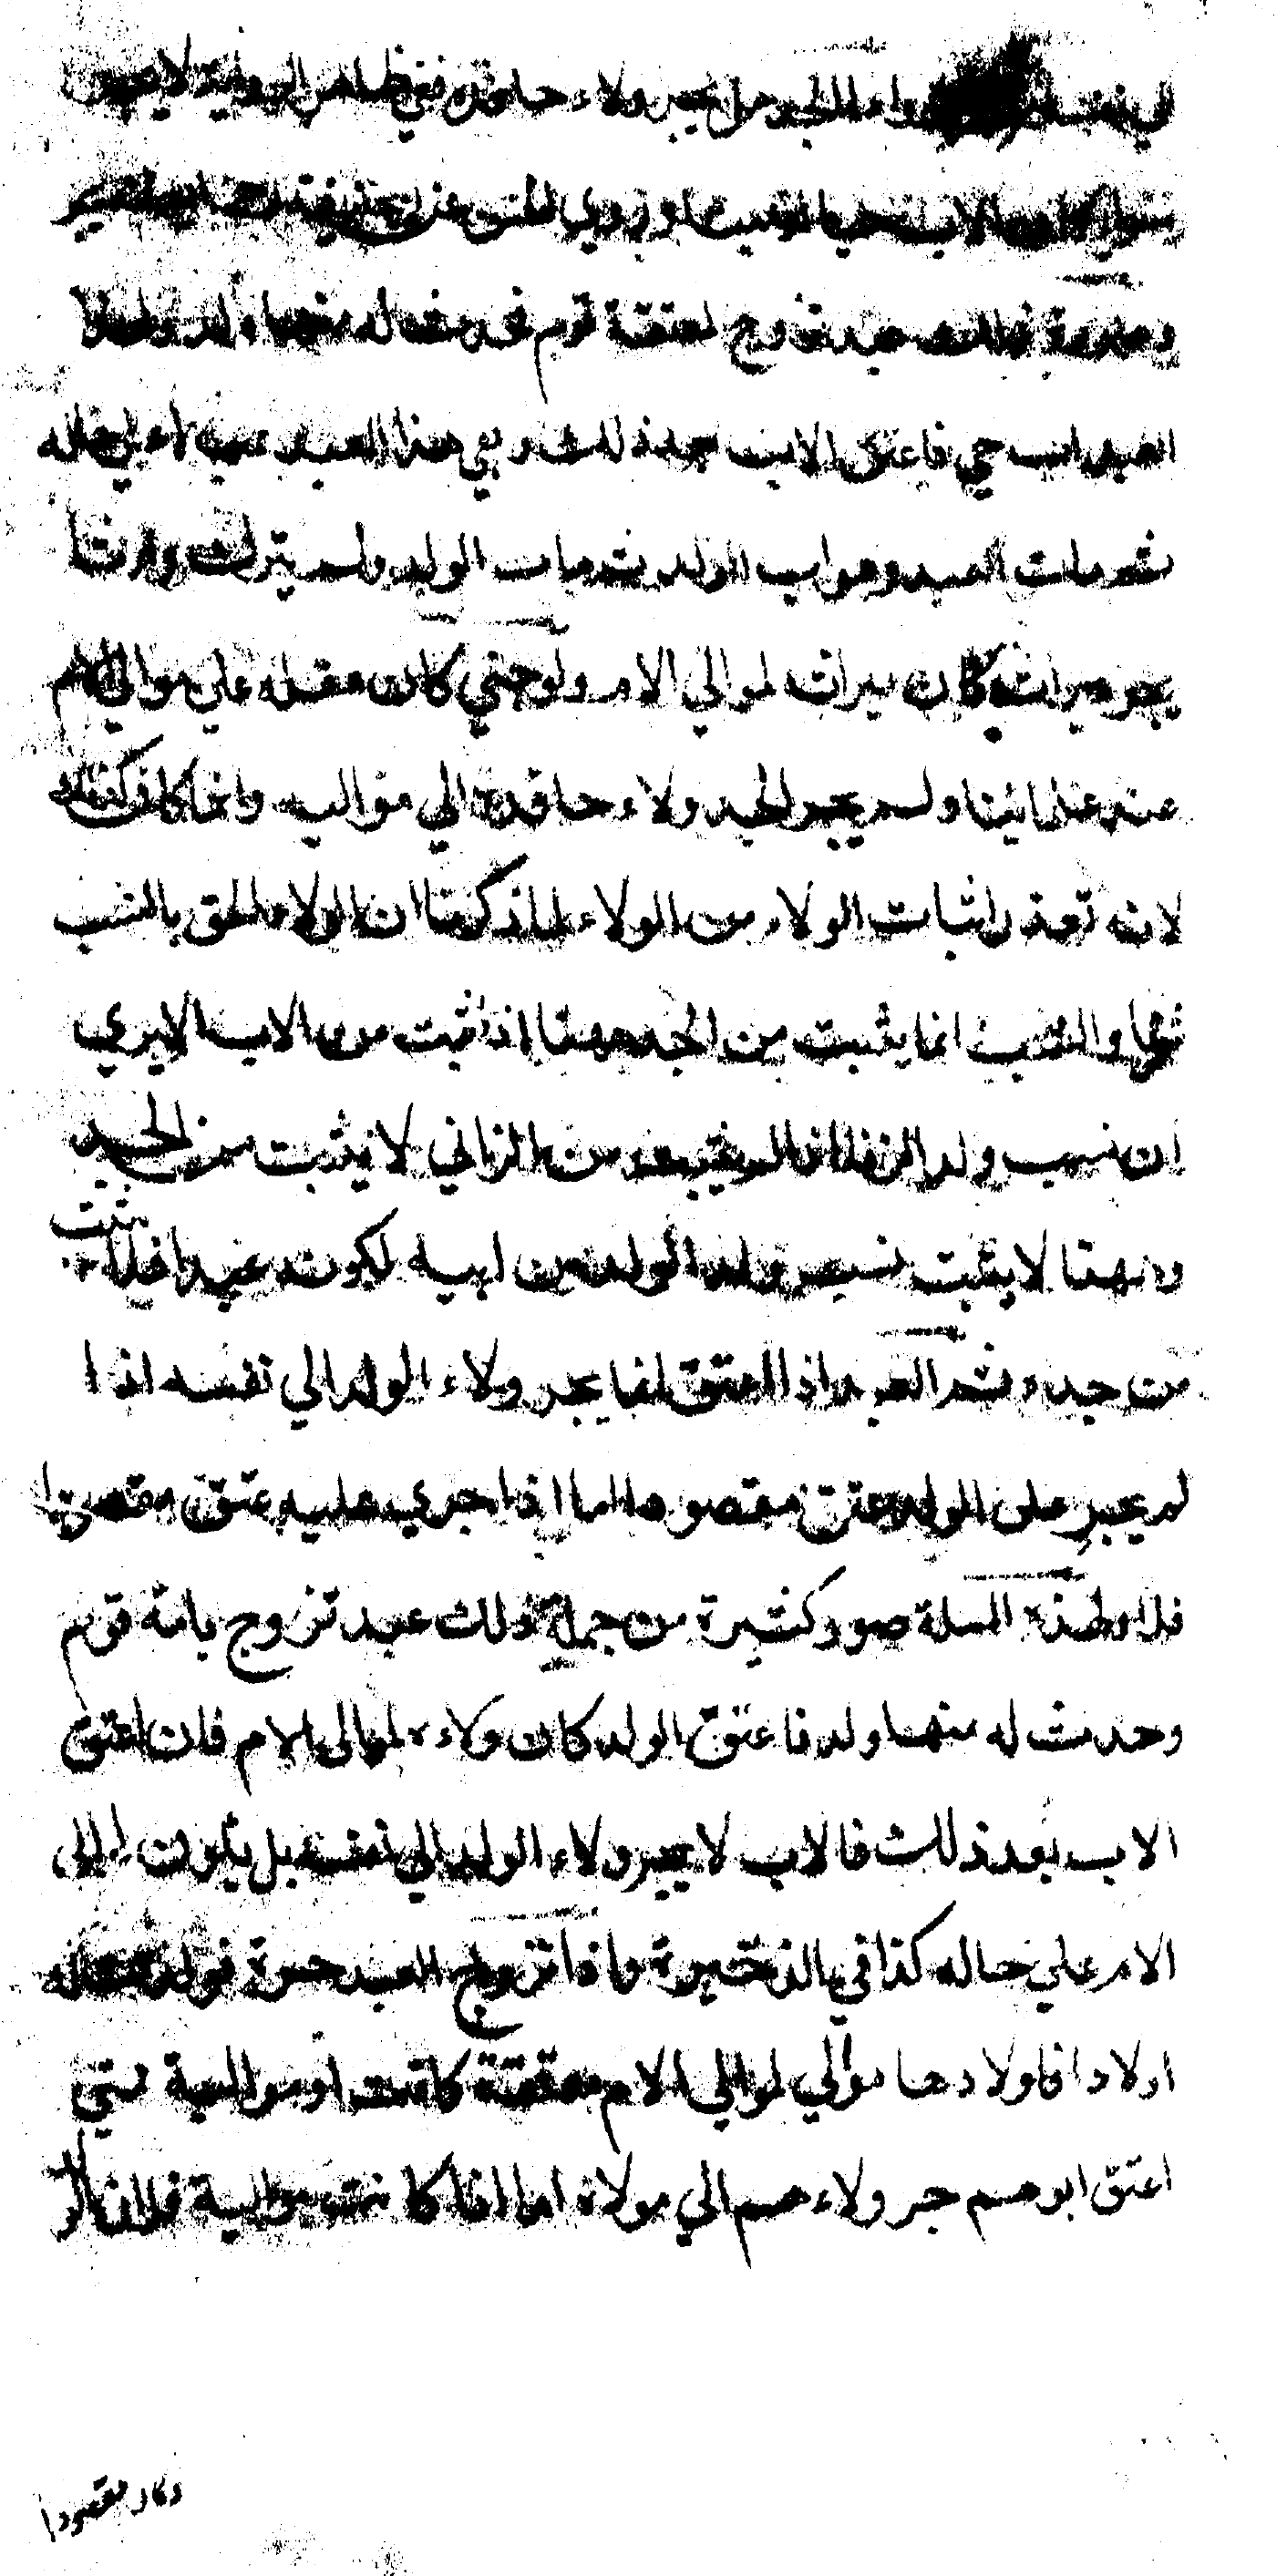 الى نفسه واما الجد هل يجر ولاء حافده ففي ظاهر الرواية لا يجر
سواء كان الاب حيا او ميتا وروى الحسن عن ابي حنيفة رحمه الله انه يجر
وصورة ذلك عبد تزوج بمعتقة قوم فحدث له منها ولد ولهذا
العبد اب حي فاعتق الاب بعد ذلك وبقي هذا العبد عبدا على حاله
ثم مات العبد وهو اب الولد ثم مات الولد ولم يترك وارثا
يجر ميراثه كان ميراثه لموالي الام ولو جنى كان عقله على موالي الام
عند علمائنا ولم يجر الجد ولاء حافده الى مواليه وانما كان كذلك
لانه تعذر اثبات الولاء من الولاء لما ذكرنا ان الولاء ملحق بالنسب
شرعا والنسب انما يثبت من الجد ههنا اذا ثبت من الاب الا يرى
ان نسب ولد الزنا اذا لم يثبت من الزاني لا يثبت من الجد
وههنا لا يثبت نسب ولد الولد من ابيه لكونه عبدا فلا يثبت
من جده ثم العبد اذا اعتق انما يجر ولاء الولد الى نفسه اذا
لم يجر على الولد عتق مقصود اما اذا جرى عليه عتق مقصودا
فلا ولهذه المسلة صور كثيرة من جملة ذلك عبد تزوج بامة قوم
وحدث له منها ولد فاعتق الولد كان ولاءه لموالي الام فان اعتق
الاب بعد ذلك فالاب لا يجر ولاء الولد الى نفسه بل يكون لموالي
الام على حاله كذا في الذخيرة واذا تزوج العبد حرة فولدت له
اولادا فاولادها موالي لموالي الام معتقة كانت او موالية متى
اعتق ابوهم جر ولاءهم الى مولاه اما اذا كانت موالية فلان
وكان مقصودا